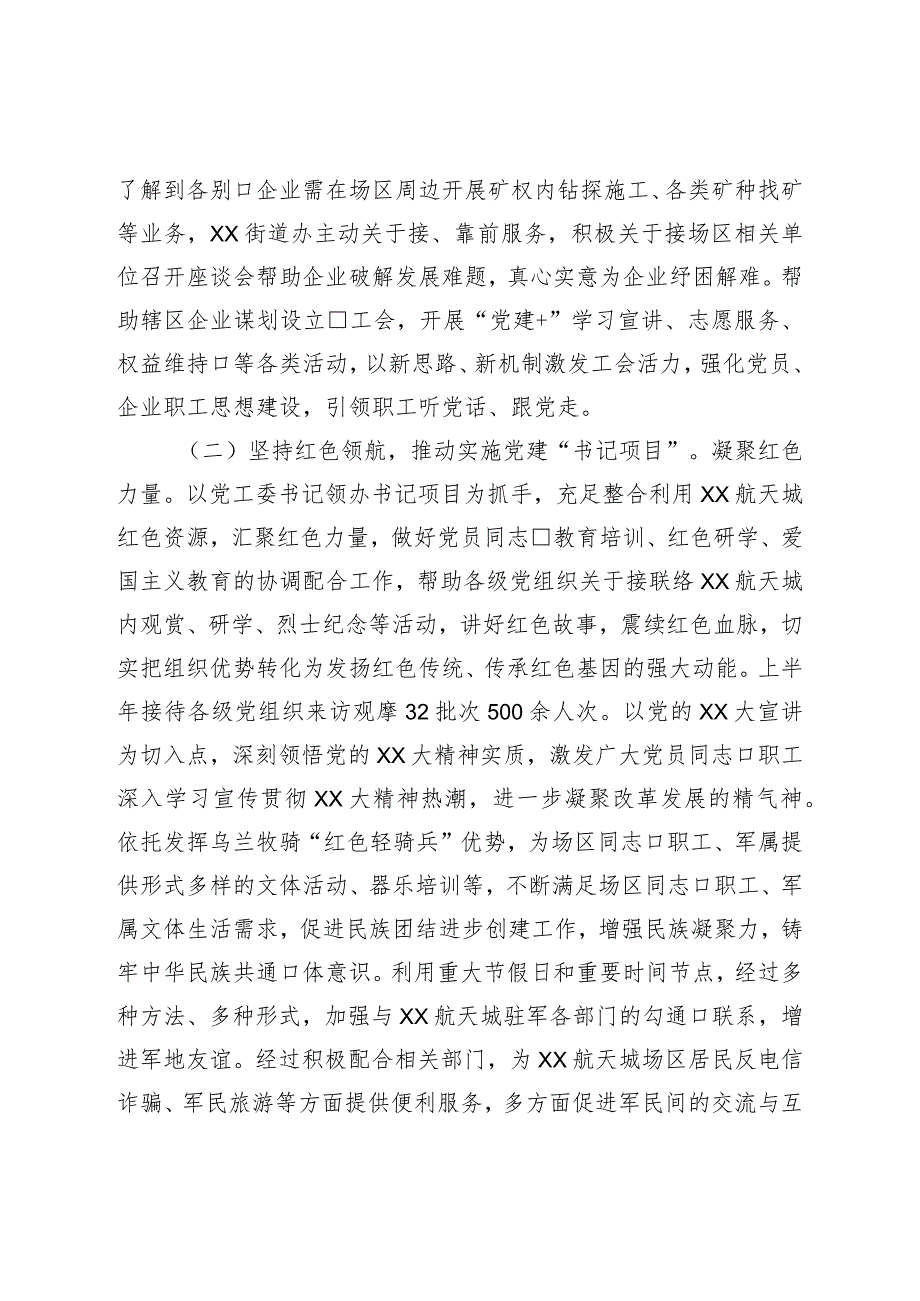 了解到各别口企业需在场区周边开展矿权内钻探施工、各类矿种找矿
等业务，XX 街道办主动关于接、靠前服务，积极关于接场区相关单
位召开座谈会帮助企业破解发展难题，真心实意为企业纾困解难。帮
助辖区企业谋划设立□工会，开展“党建+”学习宣讲、志愿服务、
权益维持口等各类活动，以新思路、新机制激发工会活力，强化党员、
企业职工思想建设，引领职工听党话、跟党走。
（二）坚持红色领航，推动实施党建“书记项目”。凝聚红色
力量。以党工委书记领办书记项目为抓手，充足整合利用 XX 航天城
红色资源，汇聚红色力量，做好党员同志□教育培训、红色研学、爱
国主义教育的协调配合工作，帮助各级党组织关于接联络 XX 航天城
内观赏、研学、烈士纪念等活动，讲好红色故事，震续红色血脉，切
实把组织优势转化为发扬红色传统、传承红色基因的强大动能。上半
年接待各级党组织来访观摩 32 批次 500 余人次。以党的 XX 大宣讲
为切入点，深刻领悟党的 XX 大精神实质，激发广大党员同志口职工
深入学习宣传贯彻 XX 大精神热潮，进一步凝聚改革发展的精气神。
依托发挥乌兰牧骑“红色轻骑兵”优势，为场区同志口职工、军属提
供形式多样的文体活动、器乐培训等，不断满足场区同志口职工、军
属文体生活需求，促进民族团结进步创建工作，增强民族凝聚力，铸
牢中华民族共通口体意识。利用重大节假日和重要时间节点，经过多
种方法、多种形式，加强与 XX 航天城驻军各部门的勾通口联系，增
进军地友谊。经过积极配合相关部门，为 XX 航天城场区居民反电信
诈骗、军民旅游等方面提供便利服务，多方面促进军民间的交流与互